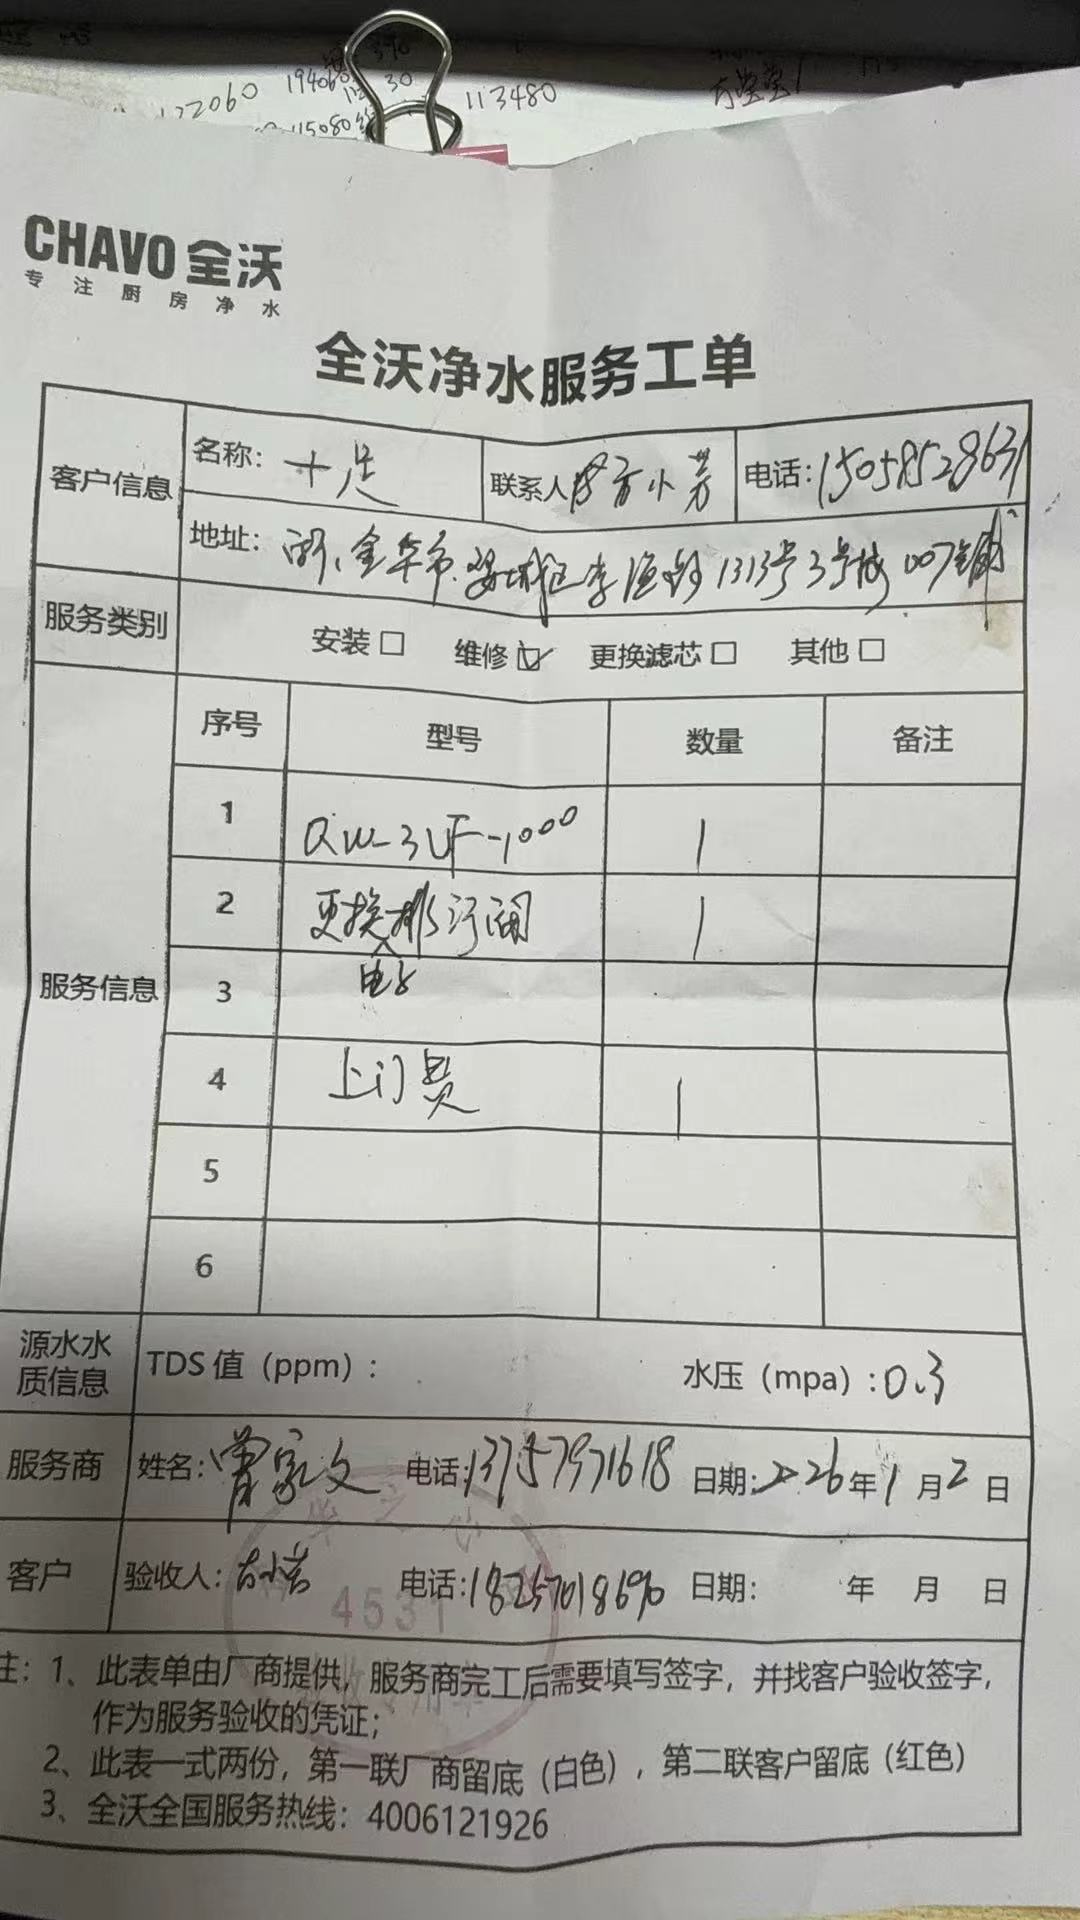 122060
113480
115080
CHAVO 全沃
专注厨房净水
全沃净水服务工单
客户信息
名称: 十足
联系人 小芳
电话: 15058528631
地址: 浙、金华市、婺城区李渔路1313号3号楼007铺
服务类别
安装□ 维修☑ 更换滤芯□ 其他□
服务信息
序号 型号 数量 备注
1 QW-3UF-1000 1
2 更换排污阀 1
电子
3
4 上门费 1
5
6
源水水质信息
TDS 值（ppm）: 水压（mpa）: 0.3
服务商 姓名: 曾家文 电话: 13757971618 日期: 2026年1月2日
客户 验收人: 电话: 18257018690 日期: 年 月 日
华之心
4531
注: 1、此表单由厂商提供，服务商完工后需要填写签字，并找客户验收签字，
作为服务验收的凭证；
2、此表一式两份，第一联厂商留底（白色），第二联客户留底（红色）
3、全沃全国服务热线：4006121926